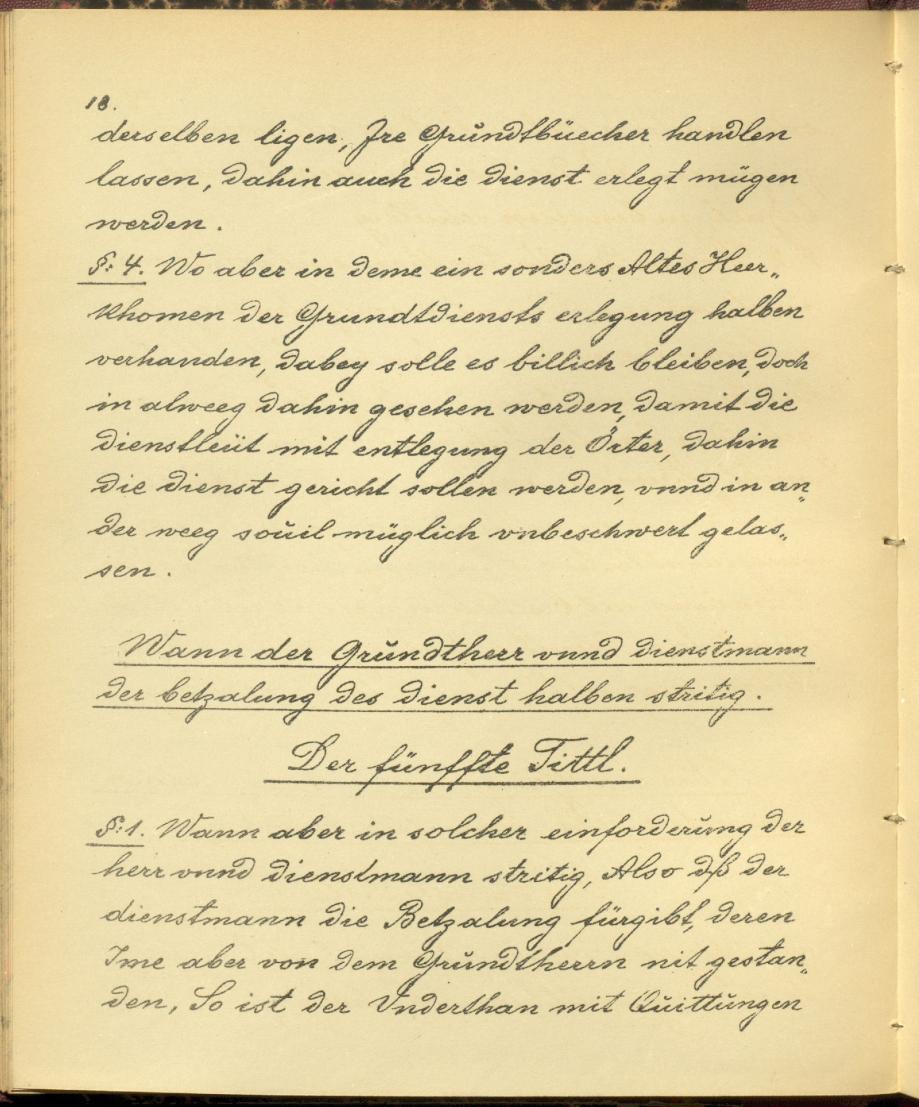 18.
derselben ligen, Jre Grŭndtbüecher handlen
lassen, dahin auch die dienst erlegt mügen
werden.
§: 4. Wo aber in deme ein sonders Altes Heer„
khomen der Grundtdiensts erlegung halben
verhanden, dabey solle es billich bleiben, doch
in alweeg dahin gesehen werden, damit die
dienstleüt mit entlegung der Örter, dahin
die dienst gericht sollen werden, vnnd in an„
der weeg soŭil müglich vnbeschwert gelas„
sen.
Wann der Grŭndtherr vnnd dienstmann
der betzalung des dienst halben stritig.
Der fünffte Tittl.
§: 1. Wann aber in solcher einforderŭng der
herr vnnd dienstmann stritig, Also dß der
dienstmann die Betzalung fürgibt, deren
Ime aber von dem Grŭndtherrn nit gestan„
den, So ist der Vnderthan mit Quittŭngen